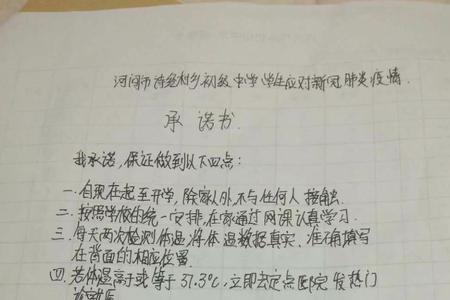 河间市诗经村乡初级中学学生应对新冠肺炎疫情
承诺书
我承诺,保证做到以下四点:
一.自现在起至开学,除家人外,不与任何人接触.
二.按照学校的统一安排,在家通过网课认真学习.
三.每天两次检测体温,将体温数据真实、准确填写
在背面的相应位置.
四.若体温高于或等于37.3℃,立即去定点医院发热门
诊就医